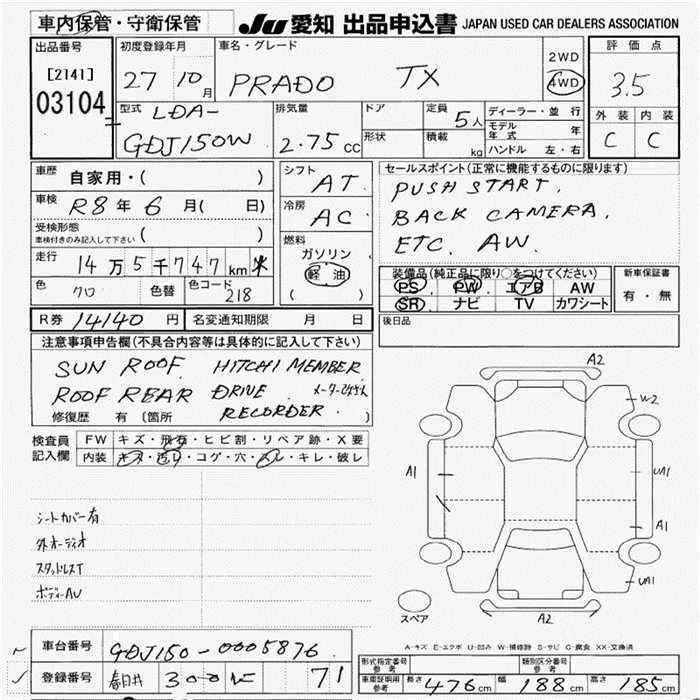 車内保管・守衛保管
JU 愛知 出品申込書 JAPAN USED CAR DEALERS ASSOCIATION
出品番号
[2141]
03104
初度登録年月
27 10月
車名・グレード
PRADO TX
2WD
4WD
評価点
3.5
外装 内装
C C
型式 LDA-
GDJ150W
排気量
2.75 cc
ドア
形状
定員 5人
積載 kg
ディーラー・並行
モデル年式 年
ハンドル 左・右
車歴 自家用・( )
車検 R8年 6月( 日)
受検形態
車検付きのみ記入して下さい ( )
走行 14万5千747km
色 クロ 色替 色コード 218
シフト AT
冷房 AC
燃料
ガソリン
軽油
( )
セールスポイント(正常に機能するものに限ります)
PUSH START.
BACK CAMERA.
ETC. AW.
装備品(純正品に限り○をつけてください)
PS PW エアB AW
SR ナビ TV カワシート
新車保証書
有・無
R券 14140円 名変通知期限 月 日
後日品
注意事項申告欄(不具合内容等は具体的に記入して下さい)
SUN ROOF. HITCHI MEMBER
ROOF REAR DRIVE
RECORDER.
修復歴 有 (箇所
検査員記入欄
FW キズ・飛石・ヒビ割・リペア跡・X要
内装 キズ・汚レ・コゲ・穴・スレ・キレ・破レ
シートカバー有
外オーディオ
スタッドレスT
ボディーAU
A2
W2
A1
UA1
A1
UA1
A2
スペア
A-キズ E-エクボ U-凹み W-補修跡 S-サビ C-腐食 XX-交換済
車台番号 GDJ150-0005876
登録番号 春日井 300 71
形式指定番号 参考
類別区分番号 参考
車庫証明用 参考 長さ 476cm 幅 188cm 高さ 185cm